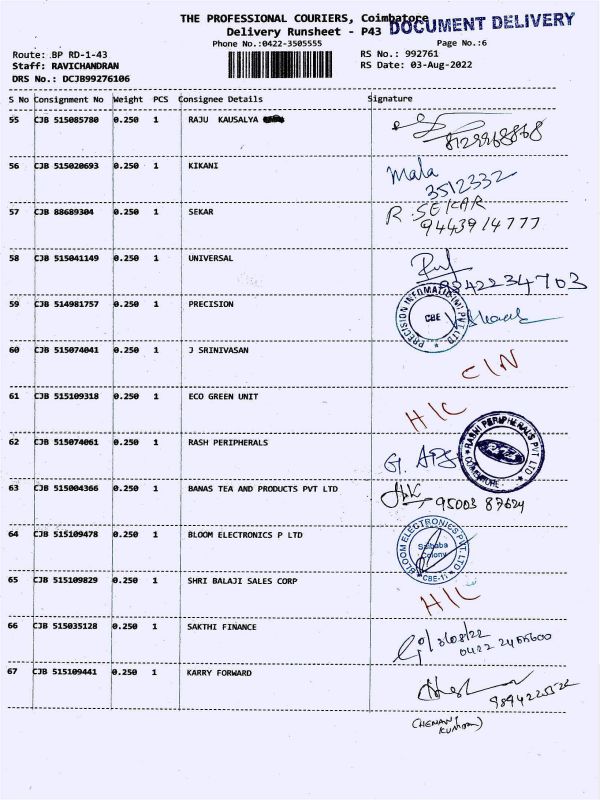 THE PROFESSIONAL COURIERS, Coimbatore
DOCUMENT DELIVERY
Delivery Runsheet - P43
Phone No.:0422-3505555
Page No.:6
Route: BP RD-1-43
RS No.: 992761
Staff: RAVICHANDRAN
RS Date: 03-Aug-2022
DRS No.: DCJB99276106
S No Consignment No Weight PCS Consignee Details Signature
55 CJB 515085780 0.250 1 RAJU KAUSALYA
8129968868
56 CJB 515020693 0.250 1 KIKANI Mala
3512332
57 CJB 88689304 0.250 1 SEKAR R.SEKAR
9443914777
58 CJB 515041149 0.250 1 UNIVERSAL
9842234703
59 CJB 514981757 0.250 1 PRECISION
PRECISION INFORMATIC (M) PVT LTD.
CBE
60 CJB 515074041 0.250 1 J SRINIVASAN
C/N
61 CJB 515109318 0.250 1 ECO GREEN UNIT
H/C
62 CJB 515074061 0.250 1 RASH PERIPHERALS
RASHI PERIPHERALS PVT LTD
COIMBATORE
63 CJB 515004366 0.250 1 BANAS TEA AND PRODUCTS PVT LTD
95003 87624
64 CJB 515109478 0.250 1 BLOOM ELECTRONICS P LTD
BLOOM ELECTRONICS PVT. LTD.
Saibaba
Colony
CBE-11
65 CJB 515109829 0.250 1 SHRI BALAJI SALES CORP
H/C
66 CJB 515035128 0.250 1 SAKTHI FINANCE
3/08/22
0422 2455600
67 CJB 515109441 0.250 1 KARRY FORWARD